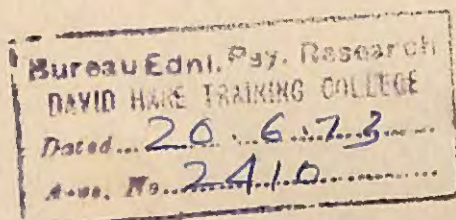 Bureau Ednl. Psy. Research
DAVID HARE TRAINING COLLEGE
Dated...20...6...73......
Accs. No...2410............